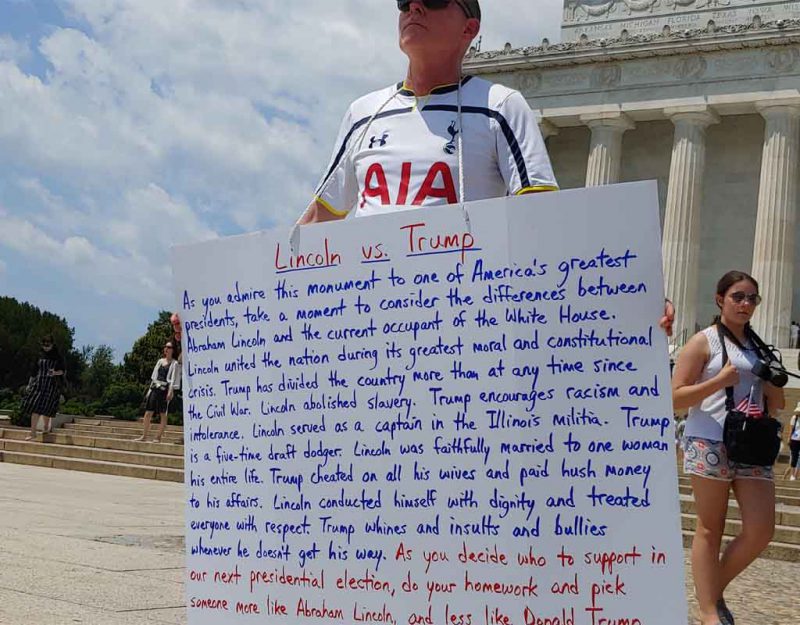 KANSAS MICHIGAN FLORIDA TEXAS
AIA
Lincoln vs. Trump
As you admire this monument to one of America's greatest
presidents, take a moment to consider the differences between
Abraham Lincoln and the current occupant of the White House.
Lincoln united the nation during its greatest moral and constitutional
crisis. Trump has divided the country more than at any time since
the Civil War. Lincoln abolished slavery. Trump encourages racism and
intolerance. Lincoln served as a captain in the Illinois militia. Trump
is a five-time draft dodger. Lincoln was faithfully married to one woman
his entire life. Trump cheated on all his wives and paid hush money
to his affairs. Lincoln conducted himself with dignity and treated
everyone with respect. Trump whines and insults and bullies
whenever he doesn't get his way. As you decide who to support in
our next presidential election, do your homework and pick
someone more like Abraham Lincoln, and less like Donald Trump